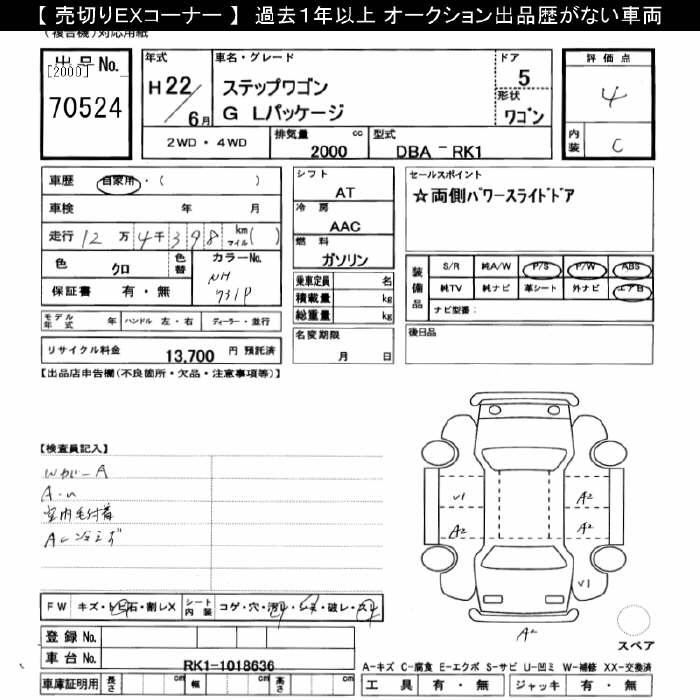 【 売切りEXコーナー 】 過去1年以上 オークション出品歴がない車両
(複合機)対応用紙
出品No.
[2000]
70524
年式
H22/6月
車名・グレード
ステップワゴン
G Lパッケージ
ドア
5
形状
ワゴン
評価点
4
内装
C
2WD・4WD
排気量 cc
2000
型式
DBA － RK1
車歴 自家用・( )
車検 年 月
走行 12万4千398 km マイル( )
色 クロ 色替 カラーNo. NH 731P
保証書 有・無
モデル年式 年 ハンドル 左・右 ディーラー・並行
リサイクル料金 13,700 円 預託済
シフト
AT
冷房
AAC
燃料
ガソリン
乗車定員 名
積載量 kg
総重量 kg
名変期限
月 日
セールスポイント
☆両側パワースライドドア
装備品
S/R 純A/W P/S P/W ABS
純TV 純ナビ 革シート 外ナビ エアB
ナビ型番：
後日品
【出品店申告欄(不良箇所・欠品・注意事項等)】
【検査員記入】
室内毛付着
FW キズ・トビ石・割レX シート内装 コゲ・穴・汚レ・シミ・破レ・スレ
登録No.
車台No. RK1-1018636
車庫証明用 長さ cm 幅 cm 高さ cm
V1
A2
A2
A2
A2
V1
A2
スペア
A-キズ C-腐食 E-エクボ S-サビ U-凹ミ W-補修 XX-交換済
工具 有・無 ジャッキ 有・無